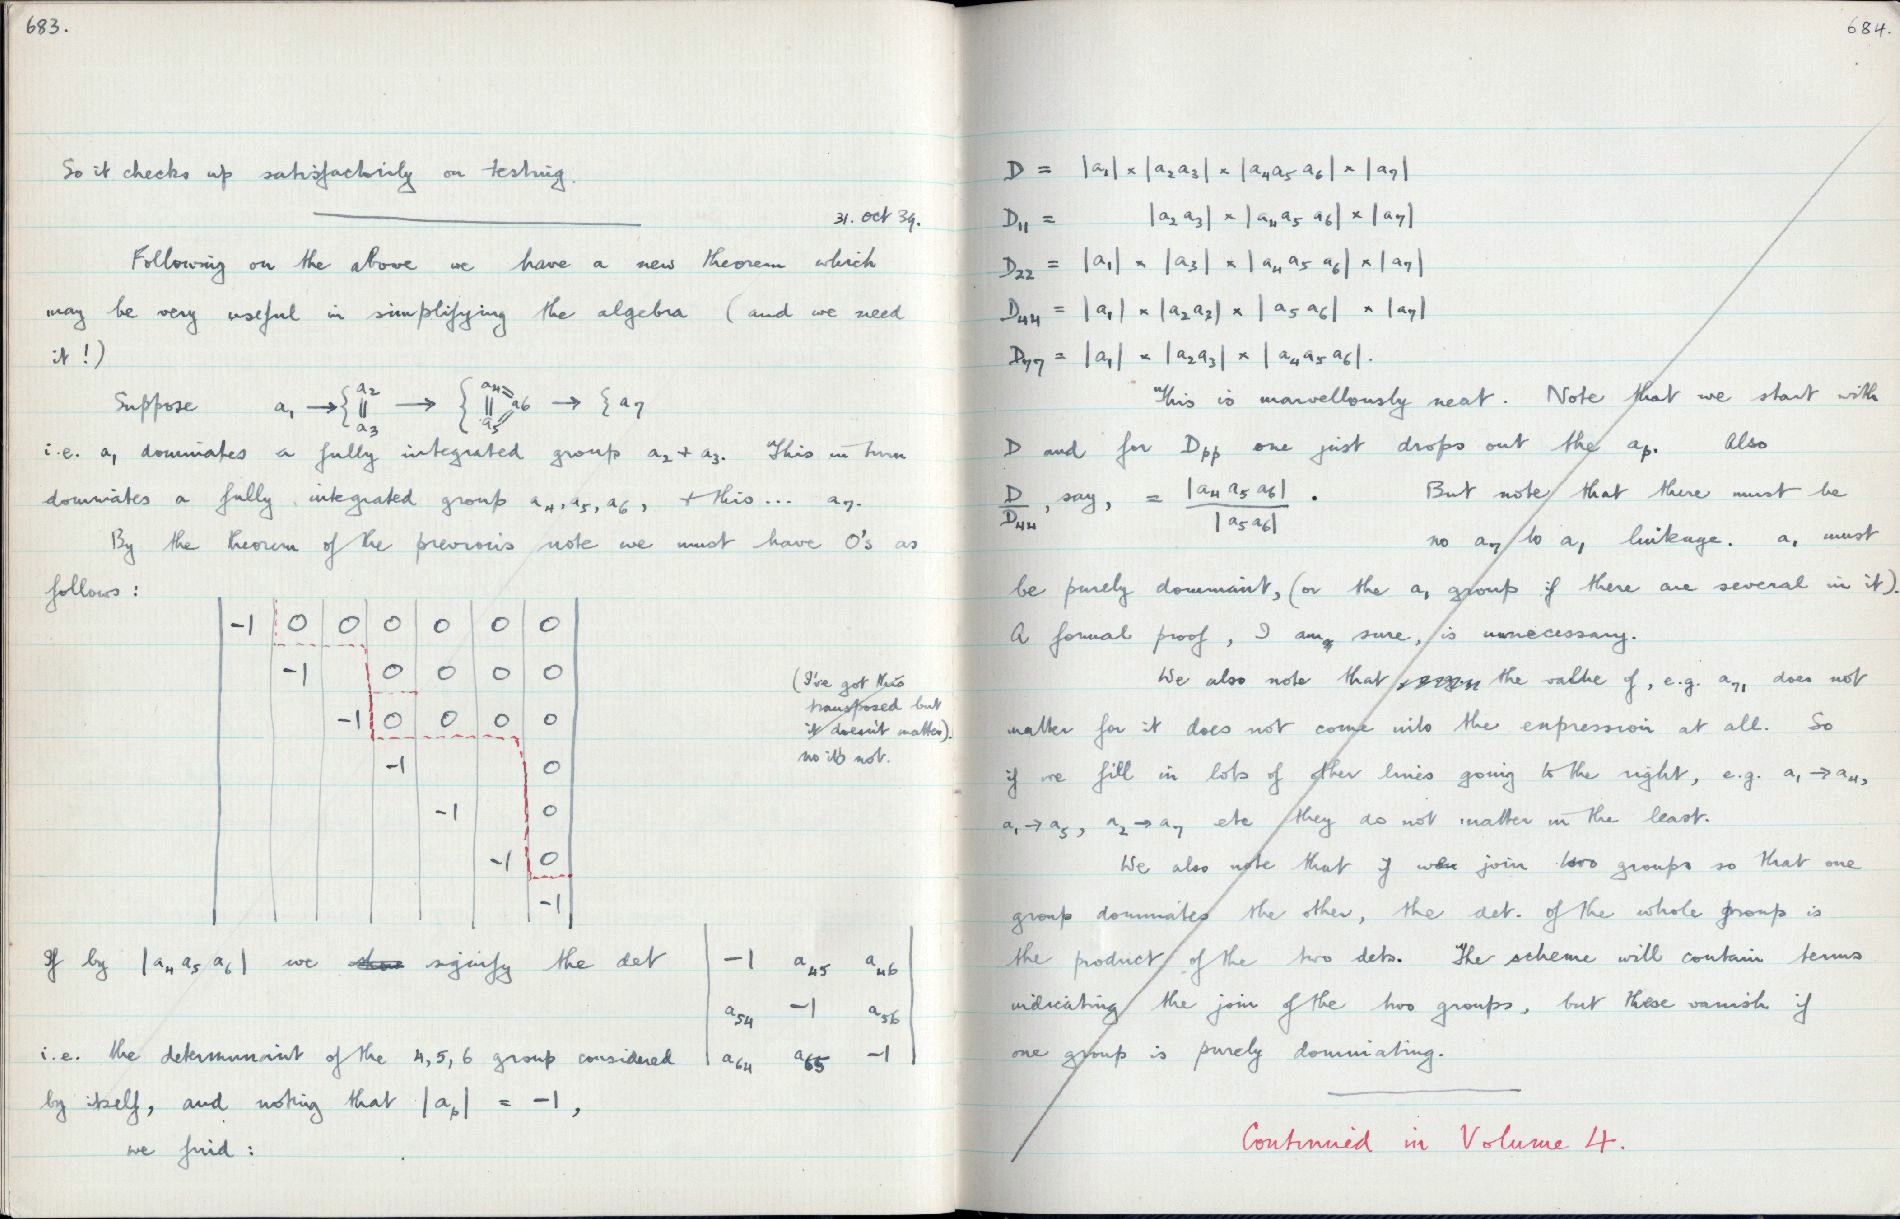 683.
So it checks up satisfactorily on testing.
31. Oct 39.
Following on the above we have a new theorem which
may be very useful in simplifying the algebra (and we need
it!)
Suppose a₁ → { a₂ || a₃ → { a₄ = a₆ || a₅ → { a₇
i.e. a₁ dominates a fully integrated group a₂ + a₃. This in turn
dominates a fully integrated group a₄, a₅, a₆, + this... a₇.
By the theorem of the previous note we must have 0's as
follows:
-1 0 0 0 0 0 0
-1 0 0 0 0
-1 0 0 0 0
-1 0
-1 0
-1 0
-1
(I've got this
transposed but
it doesn't matter).
no it's not.
If by |a₄ a₅ a₆| we signify the det
-1 a₄₅ a₄₆
a₅₄ -1 a₅₆
a₆₄ a₆₅ -1
i.e. the determinant of the 4, 5, 6 group considered
by itself, and noting that |aₚ| = -1,
we find:
684.
D = |a₁| × |a₂ a₃| × |a₄ a₅ a₆| × |a₇|
D₁₁ = |a₂ a₃| × |a₄ a₅ a₆| × |a₇|
D₂₂ = |a₁| × |a₃| × |a₄ a₅ a₆| × |a₇|
D₄₄ = |a₁| × |a₂ a₃| × |a₅ a₆| × |a₇|
D₇₇ = |a₁| × |a₂ a₃| × |a₄ a₅ a₆|.
This is marvellously neat. Note that we start with
D and for Dₚₚ one just drops out the aₚ. Also
D/D₄₄, say, = |a₄ a₅ a₆| / |a₅ a₆| . But note that there must be
no a₇ to a₁ linkage. a₁ must
be purely dominant, (or the a₁ group if there are several in it).
A formal proof, I am sure, is unnecessary.
We also note that the value of, e.g. a₇₁ does not
matter for it does not come into the expression at all. So
if we fill in lots of other lines going to the right, e.g. a₁ → a₄,
a₁ → a₅, a₂ → a₇ etc they do not matter in the least.
We also note that if we join two groups so that one
group dominates the other, the det. of the whole group is
the product of the two dets. The scheme will contain terms
indicating the join of the two groups, but these vanish if
one group is purely dominating.
Continued in Volume 4.